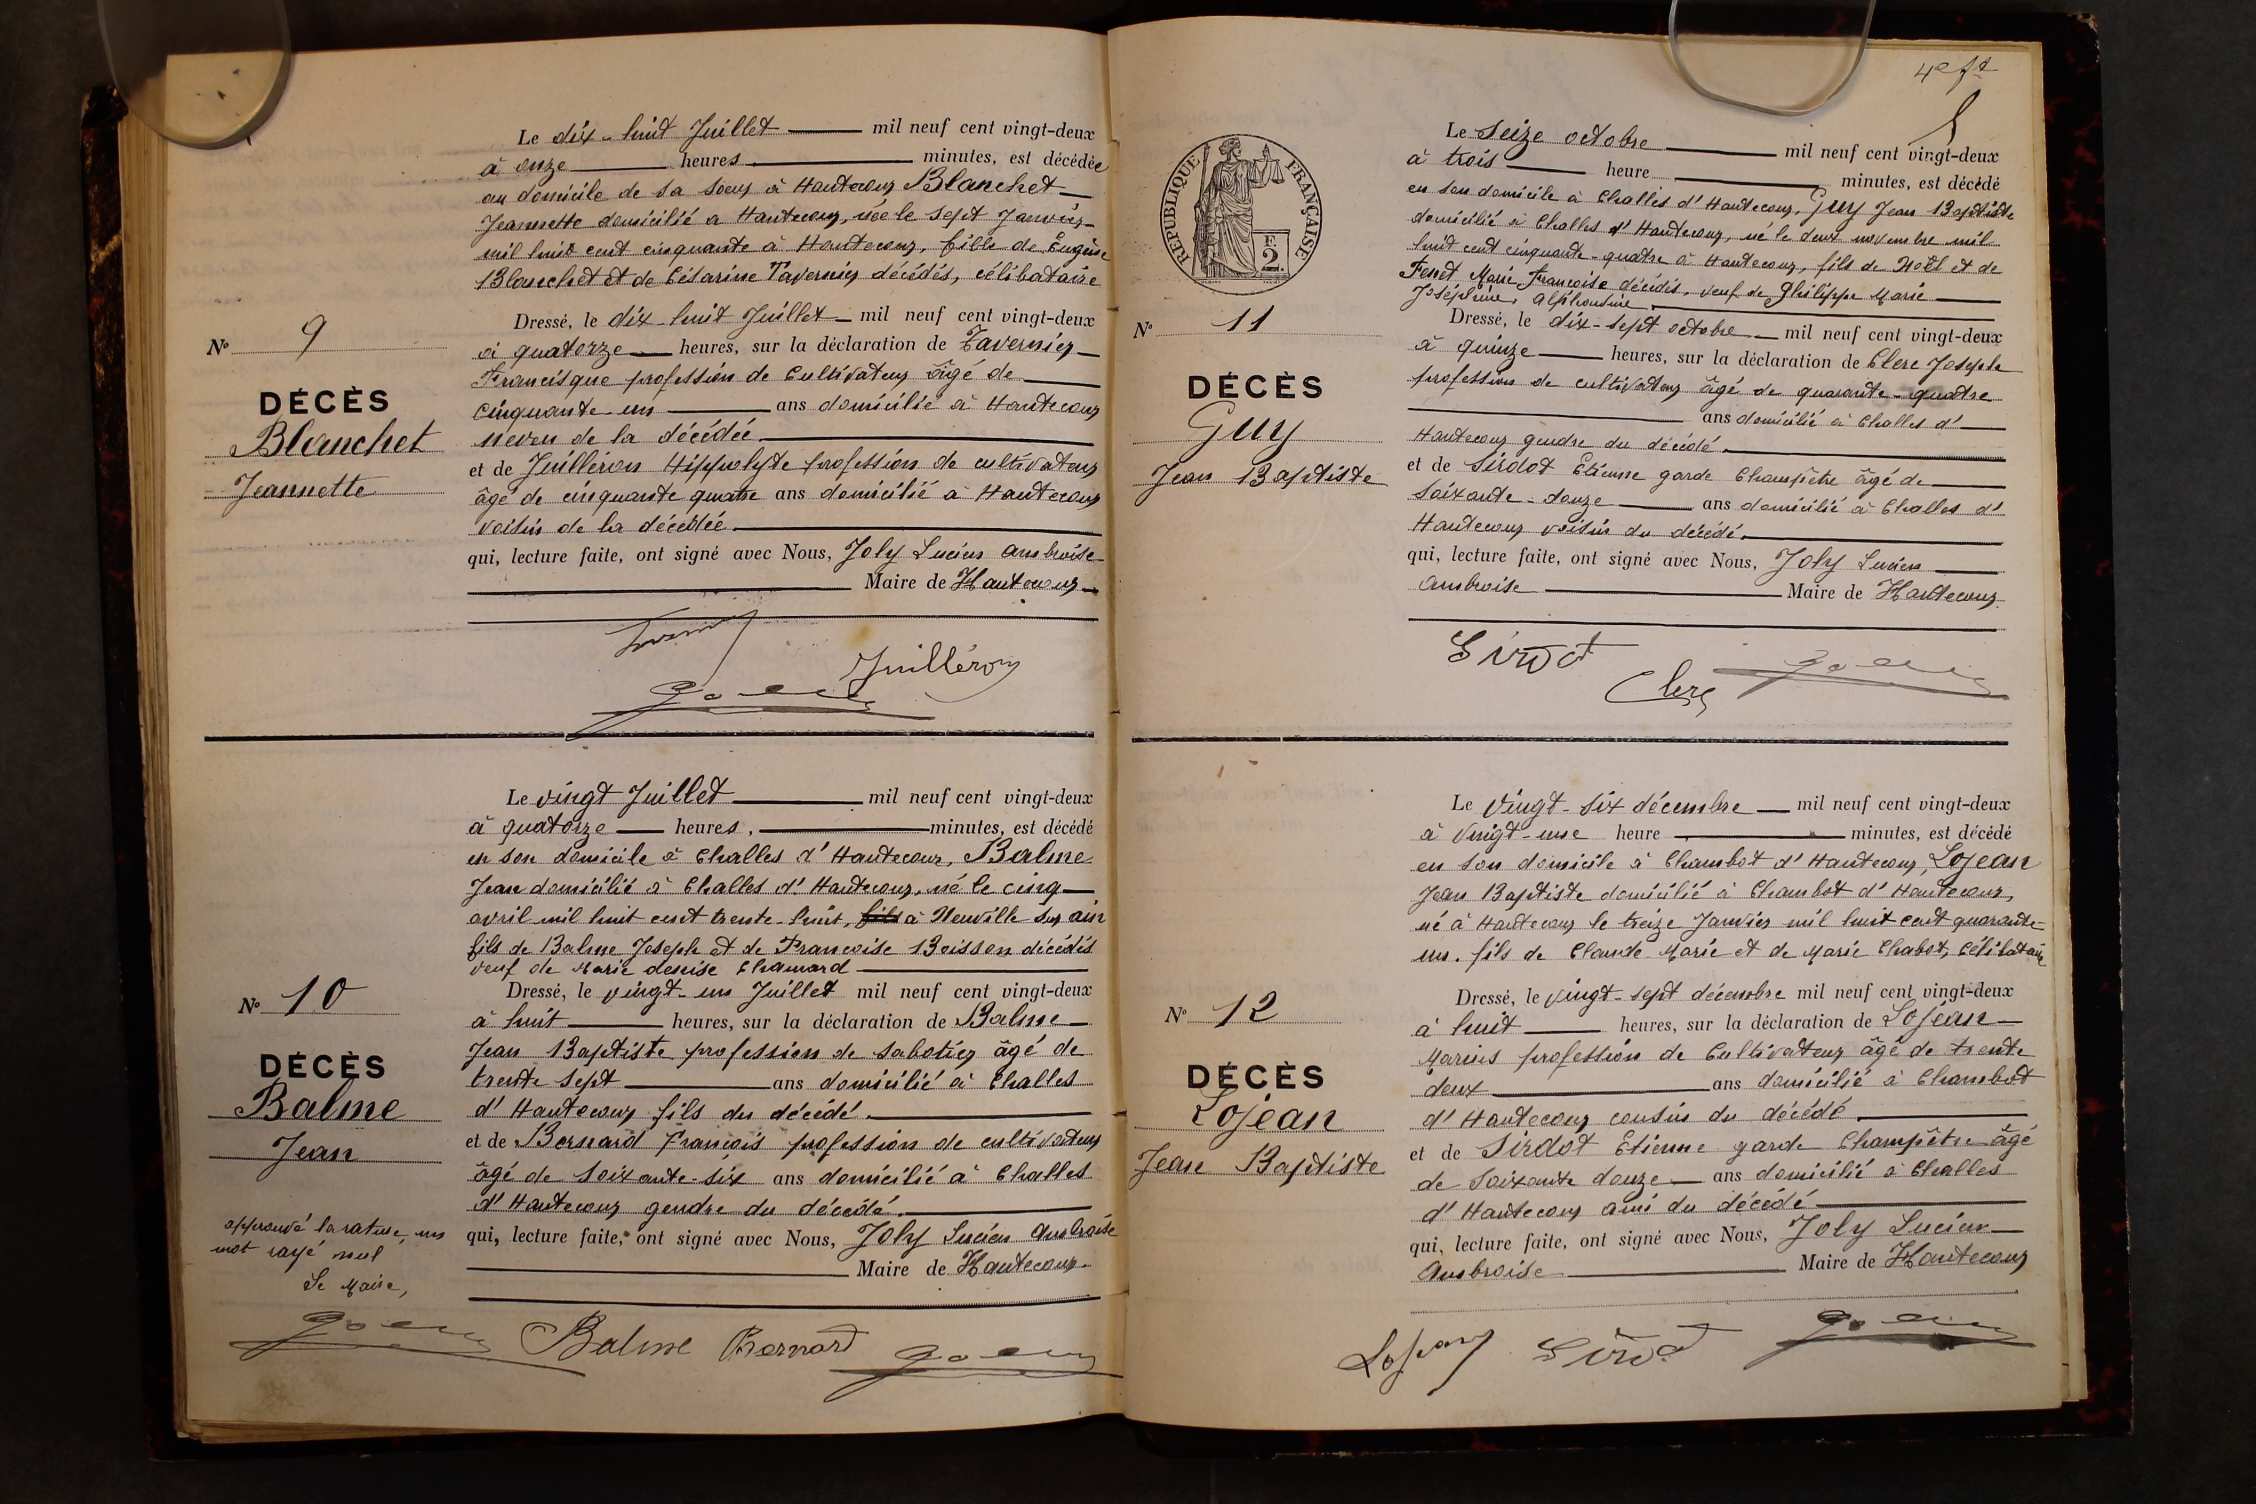 Le dix-huit Juillet mil neuf cent vingt-deux
à onze heures minutes, est décédée
au domicile de sa soeur à Hautecour Blanchet
Jeannette domicilié a Hautecour, née le sept Janvier
mil huit cent cinquante à Hautecour, fille de Eugène
Blanchet et de Césarine Tavernier décédés, célibataire
Dressé, le dix-huit Juillet mil neuf cent vingt-deux
à quatorze heures, sur la déclaration de Tavernier
Francisque profession de Cultivateur âgé de
cinquante un ans domicilié à Hautecour
neveu de la décédée
et de Juilléron Hippolyte profession de cultivateur
âgé de cinquante quatre ans domicilié à Hautecour
voisin de la décédée
qui, lecture faite, ont signé avec Nous, Joly Lucien Ambroise
Maire de Hautecour
Nº 9
DÉCÈS
Blanchet
Jeannette
Juilléron
Le vingt Juillet mil neuf cent vingt-deux
à quatorze heures, minutes, est décédé
en son domicile à Challes d'Hautecour, Balme
Jean domicilié à Challes d'Hautecour, né le cinq
avril mil huit cent trente-huit, fils à Neuville sur ain
fils de Balme Joseph et de Françoise Boisson décédés
veuf de Marie denise Chanard
Dressé, le vingt-un Juillet mil neuf cent vingt-deux
à huit heures, sur la déclaration de Balme
Jean Baptiste profession de sabotier âgé de
trente sept ans domicilié à Challes
d'Hautecour fils du décédé.
et de Bernard François profession de cultivateur
âgé de soixante-six ans domicilié à Challes
d'Hautecour gendre du décédé.
qui, lecture faite, ont signé avec Nous, Joly Lucien Ambroise
Maire de Hautecour
Nº 10
DÉCÈS
Balme
Jean
approuvé la rature, un
mot rayé nul
Le Maire,
Balme Bernard
4e ft
REPUBLIQUE FRANÇAISE
2
Le Seize octobre mil neuf cent vingt-deux
à trois heure minutes, est décédé
en son domicile à Challes d'Hautecour, Guy Jean Baptiste
domicilié à Challes d'Hautecour, né le deux novembre mil
huit cent cinquante-quatre à Hautecour, fils de Noël et de
Feret Marie Françoise décédés, veuf de Philippe Marie
Joséphine Alphonsine
Dressé, le dix-sept octobre mil neuf cent vingt-deux
à quinze heures, sur la déclaration de Clerc Joseph
profession de cultivateur âgé de quarante-quatre
ans domicilié à Challes d'
Hautecour gendre du décédé.
et de Sirdot Etienne garde Champêtre âgé de
soixante-douze ans domicilié à Challes d'
Hautecour voisin du décédé.
qui, lecture faite, ont signé avec Nous, Joly Lucien
Ambroise Maire de Hautecour
Nº 11
DÉCÈS
Guy
Jean Baptiste
Sirdot
Clerc
Le Vingt-six décembre mil neuf cent vingt-deux
à Vingt-une heure minutes, est décédé
en son domicile à Chambot d'Hautecour, Lojean
Jean Baptiste domicilié à Chambot d'Hautecour,
né à Hautecour le treize Janvier mil huit cent quarante-
un. fils de Claude Marie et de Marie Chabot, Célibataire
Dressé, le vingt-sept décembre mil neuf cent vingt-deux
à huit heures, sur la déclaration de Lojean
Marius profession de Cultivateur âgé de trente
deux ans domicilié à Chambot
d'Hautecour cousin du décédé
et de Sirdot Etienne garde Champêtre âgé
de Soixante douze ans domicilié à Challes
d'Hautecour ami du décédé
qui, lecture faite, ont signé avec Nous, Joly Lucien
Ambroise Maire de Hautecour
Nº 12
DÉCÈS
Lojean
Jean Baptiste
Lojean Sirdot